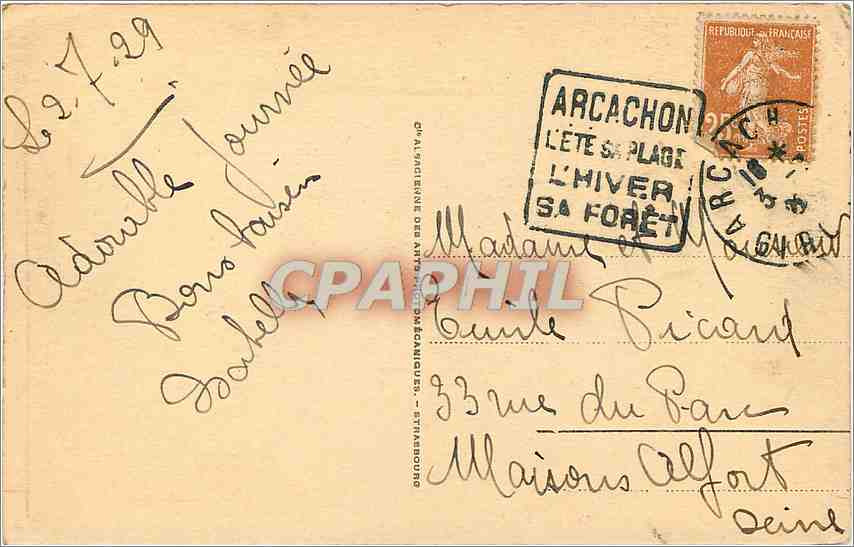 Le 2-7-29
Adorable journée
Bons baisers
Isabelle
Cie ALSACIENNE DES ARTS PHOTOMÉCANIQUES. - STRASBOURG
REPUBLIQUE FRANÇAISE
25c
POSTES
ARCACHON
L'ÉTÉ SA PLAGE
L'HIVER
SA FORÊT
ARCACH
18 *
3
Madame et Monsieur
Emile Picard
33 rue du Parc
Maisons Alfort
Seine
CPAPHIL